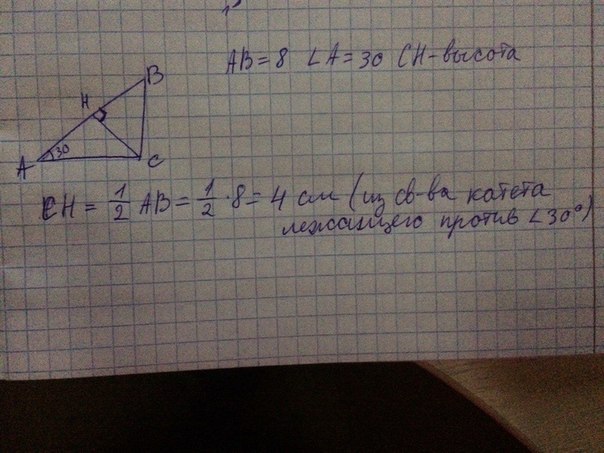 AB=8 ∠A=30 CH-высота
B
H
A
30
C
CH = 1/2 AB = 1/2 · 8 = 4 см (из св-ва катета
лежащего против ∠30°)